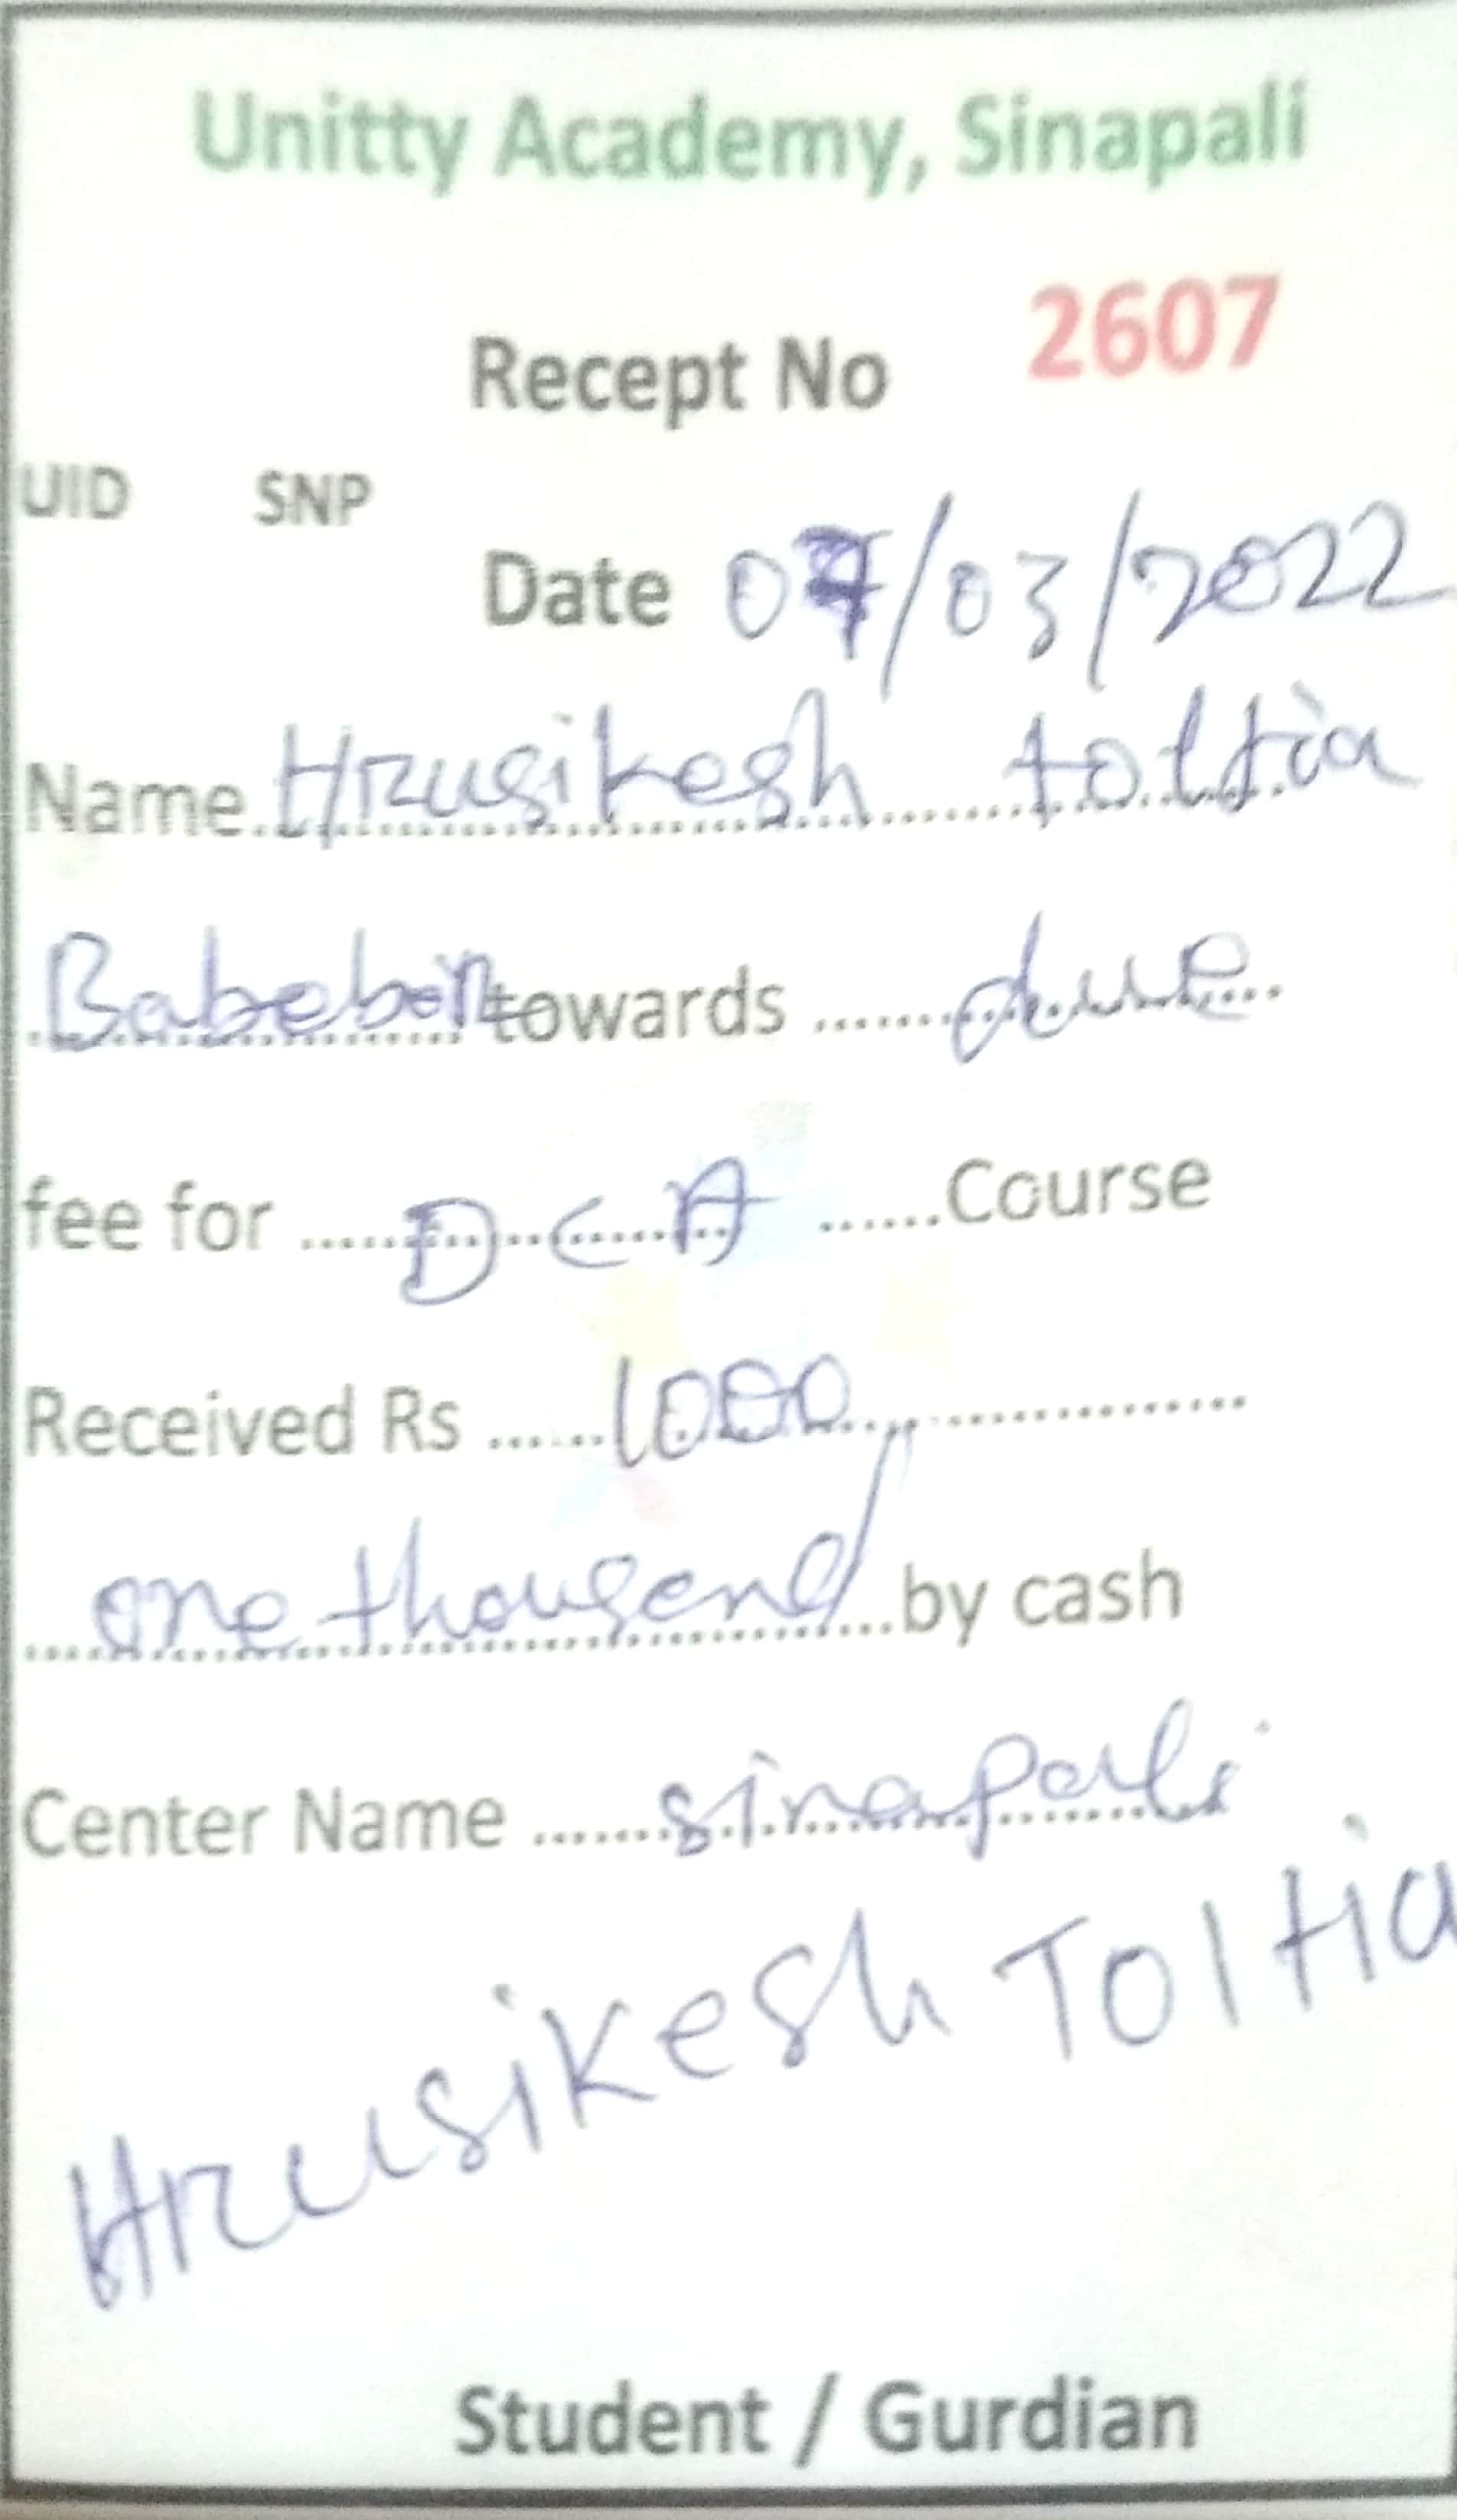 Unitty Academy, Sinapali
Recept No 2607
UID SNP
Date 07/03/2022
Name Hrusikesh toltia
towards due
fee for D.C.A Course
Received Rs 1000
one thousend by cash
Center Name sinapali
Hrusikesh Toltia
Student / Gurdian